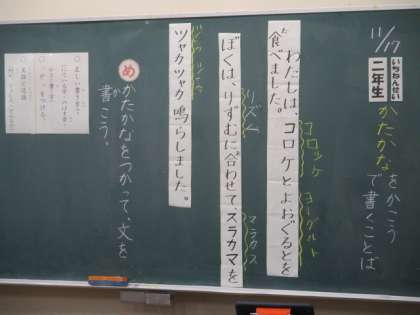 11/17
二年生
かたかなをかこう
で書くことば
コロッケ ヨーグルト
わたしは、コロケとよおぐるとを
食べました。
リズム マラカス
ぼくは、りずむに合わせて、スラカマを
ツャカツャカ鳴らしました。
め
かたかなをつかって、文を
書こう。